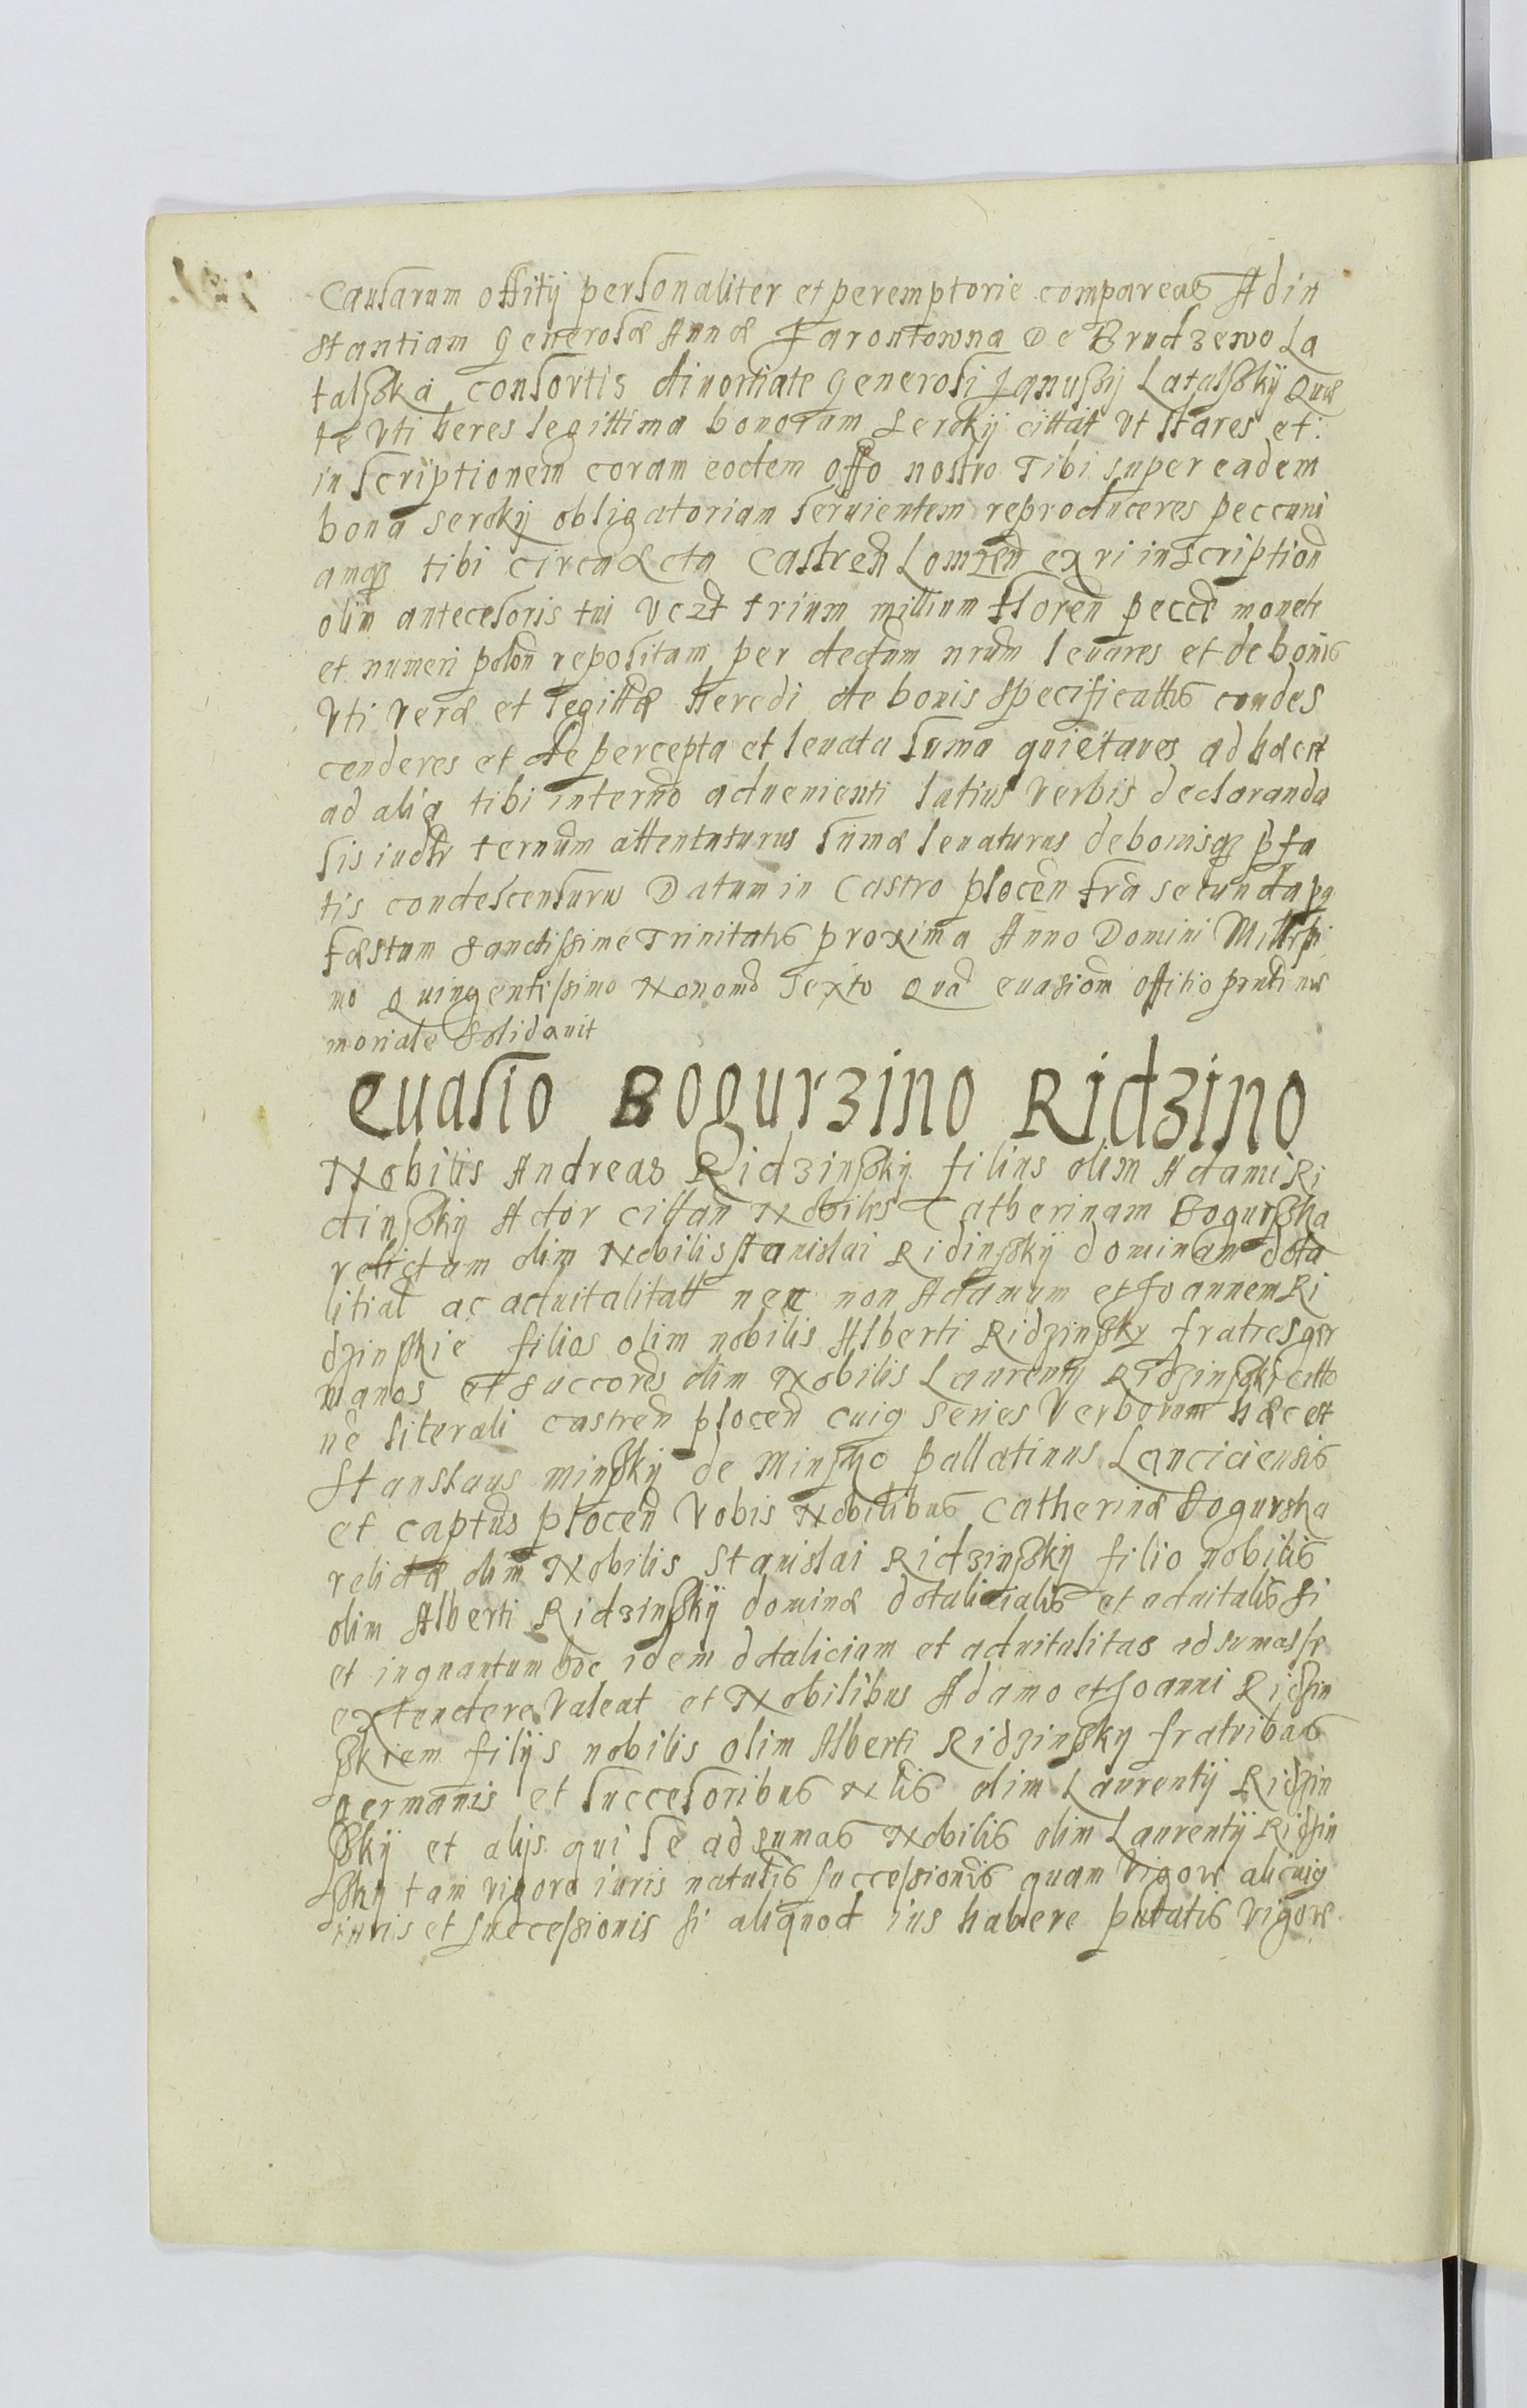 Causarum offitij personaliter et peremptorie compareas Ad in
stantiam Generosæ Annæ Jarontowna De Brudzewo La
talska consortis divortiate Generosi Janussij Latalsky Quæ
te Vti heres legittima bonorum Sercky cittat Vt stares et
inscriptionem coram eodem offo nostro Tibi super eadem
bona sercky obligatoriam seruientem reproduceres peccuni
amq3 tibi circa Acta Castren Lomzen ex vi inscription
olim antecesoris tui Vczt trium millium floren pecct monete
et numeri polon repositam per dectum nrum levares et de bonis
Vti veræ et legittæ heredi de bonis specificattis condes
cenderes et de percepta et levata suma quietares ad hæc et
ad alia tibi in termo advenienti latius verbis declaranda
sis iudtr termum attentuturus sumæ levaturus de bonisq3 pfa
tis condescensurus Datum in Castro plocen fra secunda pq
fæstum sanctissime Trinitatis proxima Anno Domini Millesi
mo Quingentissimo Nonomo sexto Qua evasiom offitio pnti me
moriale solidavit
Evasio Bogurzino Ridzino
Nobilis Andreas Ridzinsky filius olim Adami Ri
dinsky Actor cittan Nobiles Catherinam Bogurska
relictam olim Nobilis stanislai Ridinsky dominam dota
litial ac advitalitatt nec non Adamum et Joannem Ri
dzinskie filios olim nobilis Alberti Ridzinsky fratres ger
manos et succores olim Nobilis Laurenty Ridzinski citto
ne literali castren plocen cuig series Verborum hæc est
Stanslaus minsky de Minsko pallatinus Lanciciensis
et captus plocen Vobis Nobilibus Catherinæ Bogurska
relictæ olim Nobilis Stanislai Ridzinsky filio nobilis
olim Alberti Ridzinsky dominæ dotalicialis et advitalis si
et inquantum hoc idem dotalicium et advitalitas ad sumas se
extendere Valeat et Nobilibus Adamo et Joanni Ridzin
skiem filijs nobilis olim Alberti Ridzinsky fratribus
germanis et succesoribus Nlis olim Laurentij Ridzin
sky et alijs qui se ad sumas Nobilis olim Laurentij Ridzin
sky tam vigore iuris natulis successionis quam vigore alicuig
iuris et successionis si aliquod ius habere putatis vigore